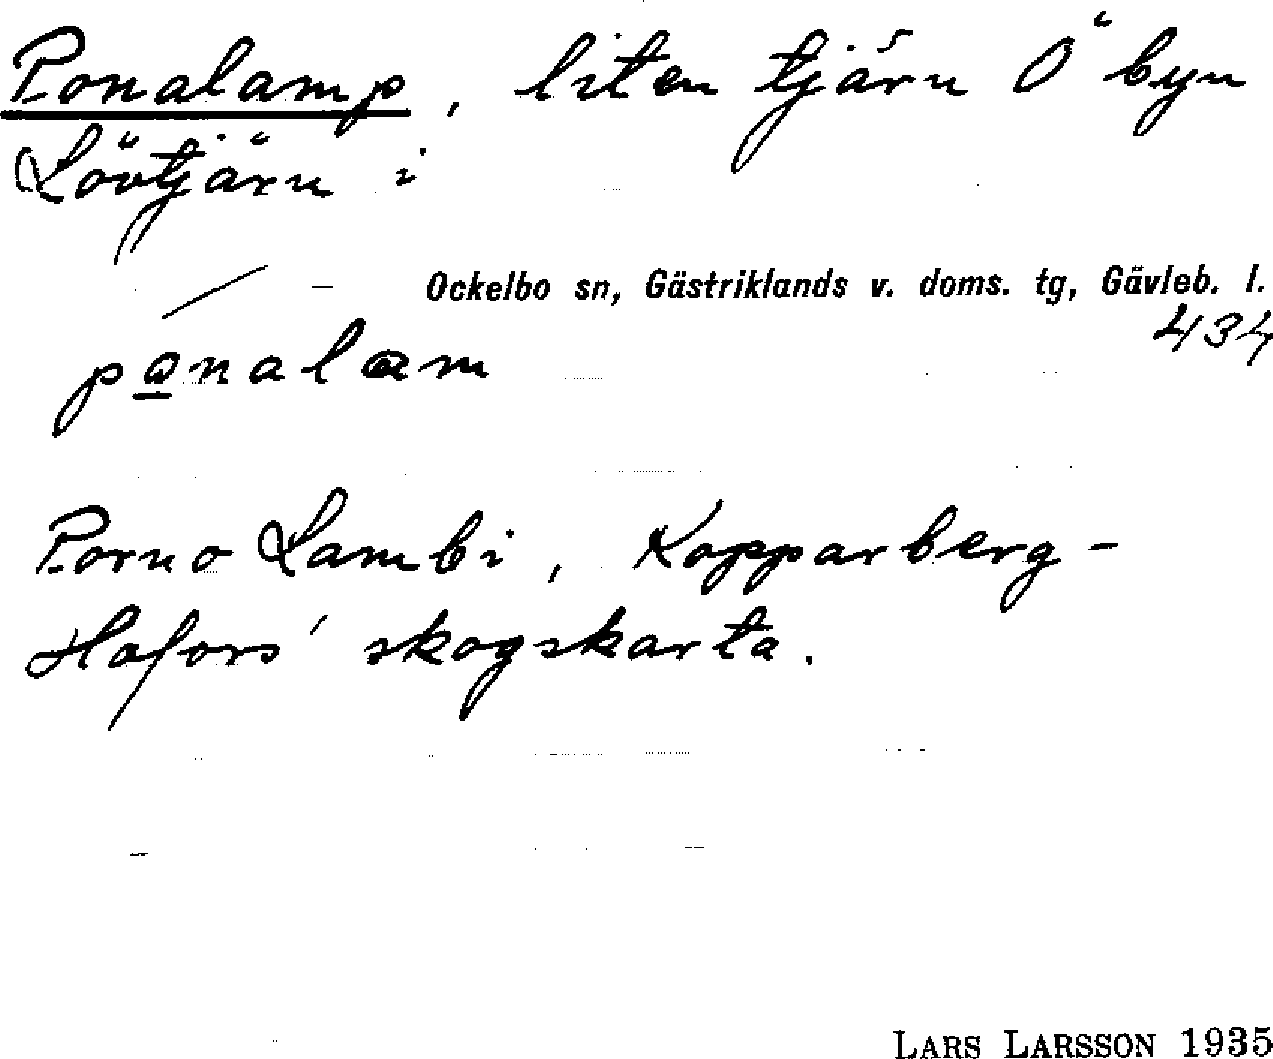 Ponalamp, liten tjärn Ö byn
Lövtjärn i
Ockelbo sn, Gästriklands v. doms. tg, Gävleb. l.
434
ponalam
Porno Lambi, Kopparberg-
Hofors' skogskarta.
LARS LARSSON 1935